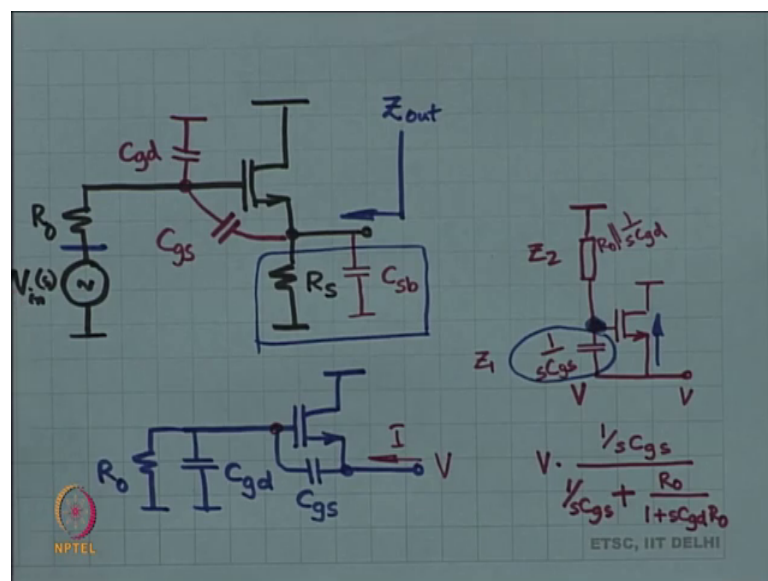 Zout
Cgd
Ro
Cgs
Vin(s)
Rs
Csb
Z2
Ro || 1/sCgd
Z1
1/sCgs
V
V
I
V
Ro
Cgd
Cgs
V · (1/sCgs) / (1/sCgs + Ro/(1+sCgdRo))
NPTEL
ETSC, IIT DELHI